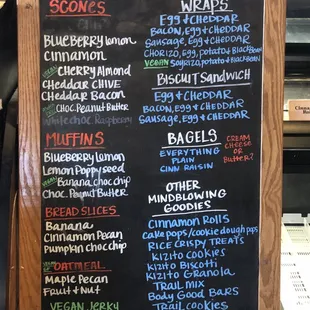 SCONES
BLUEBERRY lemon
CINNAMON
VEGAN CHERRY Almond
CHEDDAR CHIVE
CHEDDAR BACON
CHOC. PEANUT BUTTER
White choc Raspberry
MUFFINS
BLUEBERRY LEMON
LEMON POPPYSEED
VEGAN BANANA CHOC CHIP
CHOC. PEANUT BUTTER
BREAD SLICES
BANANA
CINNAMON PECAN
PUMPKIN CHOC CHIP
OATMEAL
MAPLE PECAN
FRUIT & NUT
VEGAN JERKY
WRAPS
EGG & CHEDDAR
BACON, EGG & CHEDDAR
SAUSAGE, EGG & CHEDDAR
CHORIZO, EGG, POTATO & BLACK BEAN
VEGAN SOYRIZO, POTATO & BLACK BEAN
BISCUIT SANDWICH
EGG & CHEDDAR
BACON, EGG & CHEDDAR
SAUSAGE, EGG & CHEDDAR
BAGELS
EVERYTHING
PLAIN
CINN RAISIN
CREAM
CHEESE
OR
BUTTER?
OTHER
MINDBLOWING
GOODIES
CINNAMON ROLLS
CAKE POPS/COOKIE DOUGH POPS
RICE CRISPY TREATS
KIZITO COOKIES
KIZITO BISCOTTI
KIZITO GRANOLA
TRAIL MIX
BODY GOOD BARS
TRAIL COOKIES